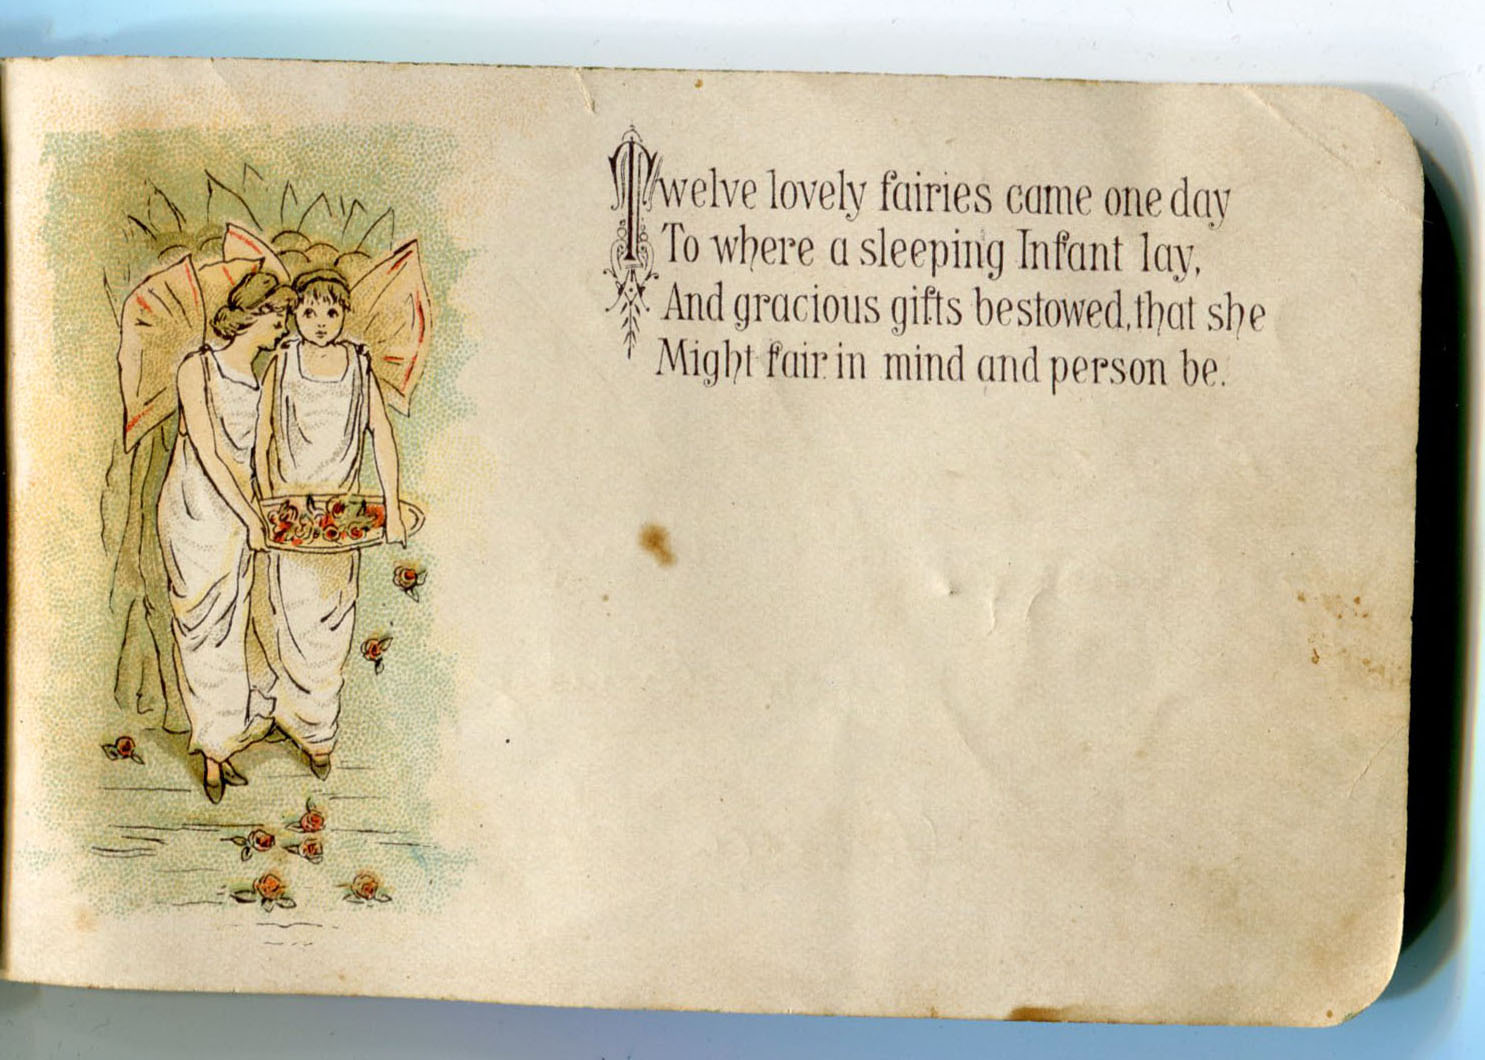 Twelve lovely fairies came one day
To where a sleeping Infant lay,
And gracious gifts bestowed, that she
Might fair in mind and person be.